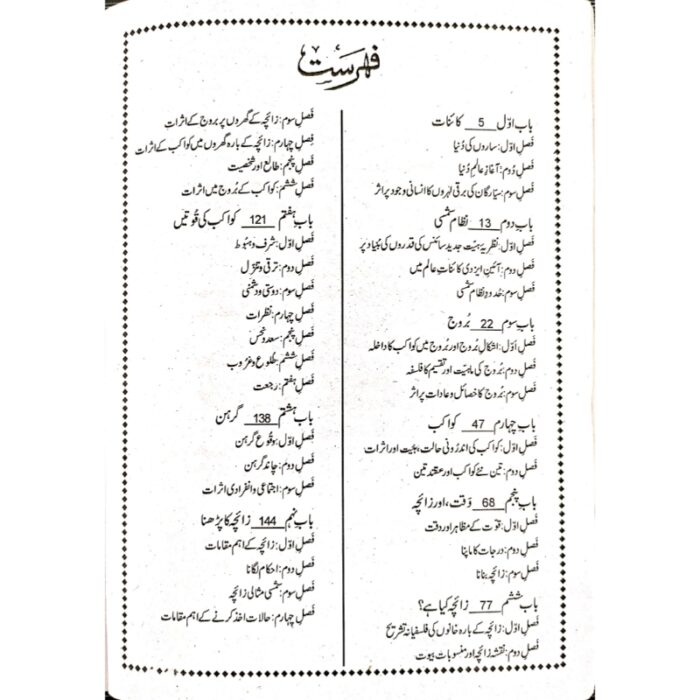 فہرست
باب اوّل 5 کائنات
فصل اوّل: ستاروں کی دُنیا
فصل دُوم: آغازِ عالم دُنیا
فصل سوم: سیّارگان کی برقی لہروں کا انسانی وجود پر اثر
باب دوم 13 نظامِ شمسی
فصل اوّل: نظریہ ہیئت جدید سائنس کی قدروں کی بُنیاد پر
فصل دوم: آئینِ ایزدی کائناتِ عالم میں
فصل سوم: حُدودِ نظامِ شمسی
باب سوم 22 بُروج
فصل اوّل: اشکالِ بُروج اور بُروج میں کواکب کا داخلہ
فصل دوم: بُروج کی ماہیّت اور تقسیم کا فلسفہ
فصل سوم: بُروج کا خصائل و عادات پر اثر
باب چہارم 47 کواکب
فصل اوّل: کواکب کی اندرُونی حالت، ہیئیت اور اثرات
فصل دوم: تین نئے کواکب اور عقدتین
باب پنجم 68 وقت، اور زائچہ
فصل اوّل: قوت کے مظاہر اور وقت
فصل دوم: درجات کا ماپنا
فصل سوم: زائچہ بنانا
باب ششم 77 زائچہ کیا ہے؟
فصل اوّل: زائچہ کے بارہ خانوں کی فلسفیانہ تشریح
فصل دوم: نقشہ زائچہ اور منسوبات بیوت
فصل سوم: زائچہ کے گھروں پر بروج کے اثرات
فصل چہارم: زائچہ کے بارہ گھروں میں کواکب کے اثرات
فصل پنجم: طالع اور شخصیت
فصل ششم: کواکب کے بُروج میں اثرات
باب ہفتم 121 کواکب کی قُوتیں
فصل اوّل: شرف و ہبُوط
فصل دوم: ترقی و تنزّل
فصل سوم: دوستی و دشمنی
فصل چہارم: نظرات
فصل پنجم: سعد و نحس
فصل ششم: طُلوع و غروب
فصل ہفتم: رجعت
باب ہشتم 138 گرہن
فصل اوّل: وقُوعِ گرہن
فصل دوم: چاند گرہن
فصل سوم: اجتماعی و انفرادی اثرات
باب نہم 144 زائچہ کا پڑھنا
فصل اوّل: زائچہ کے اہم مقامات
فصل دوم: احکام لگانا
فصل سوم: شمسی مثالی زائچہ
فصل چہارم: حالات اخذ کرنے کے اہم مقامات